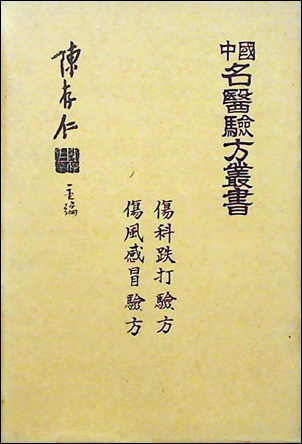 中國
名醫驗方叢書
傷科跌打驗方
傷風感冒驗方
陳存仁
主編